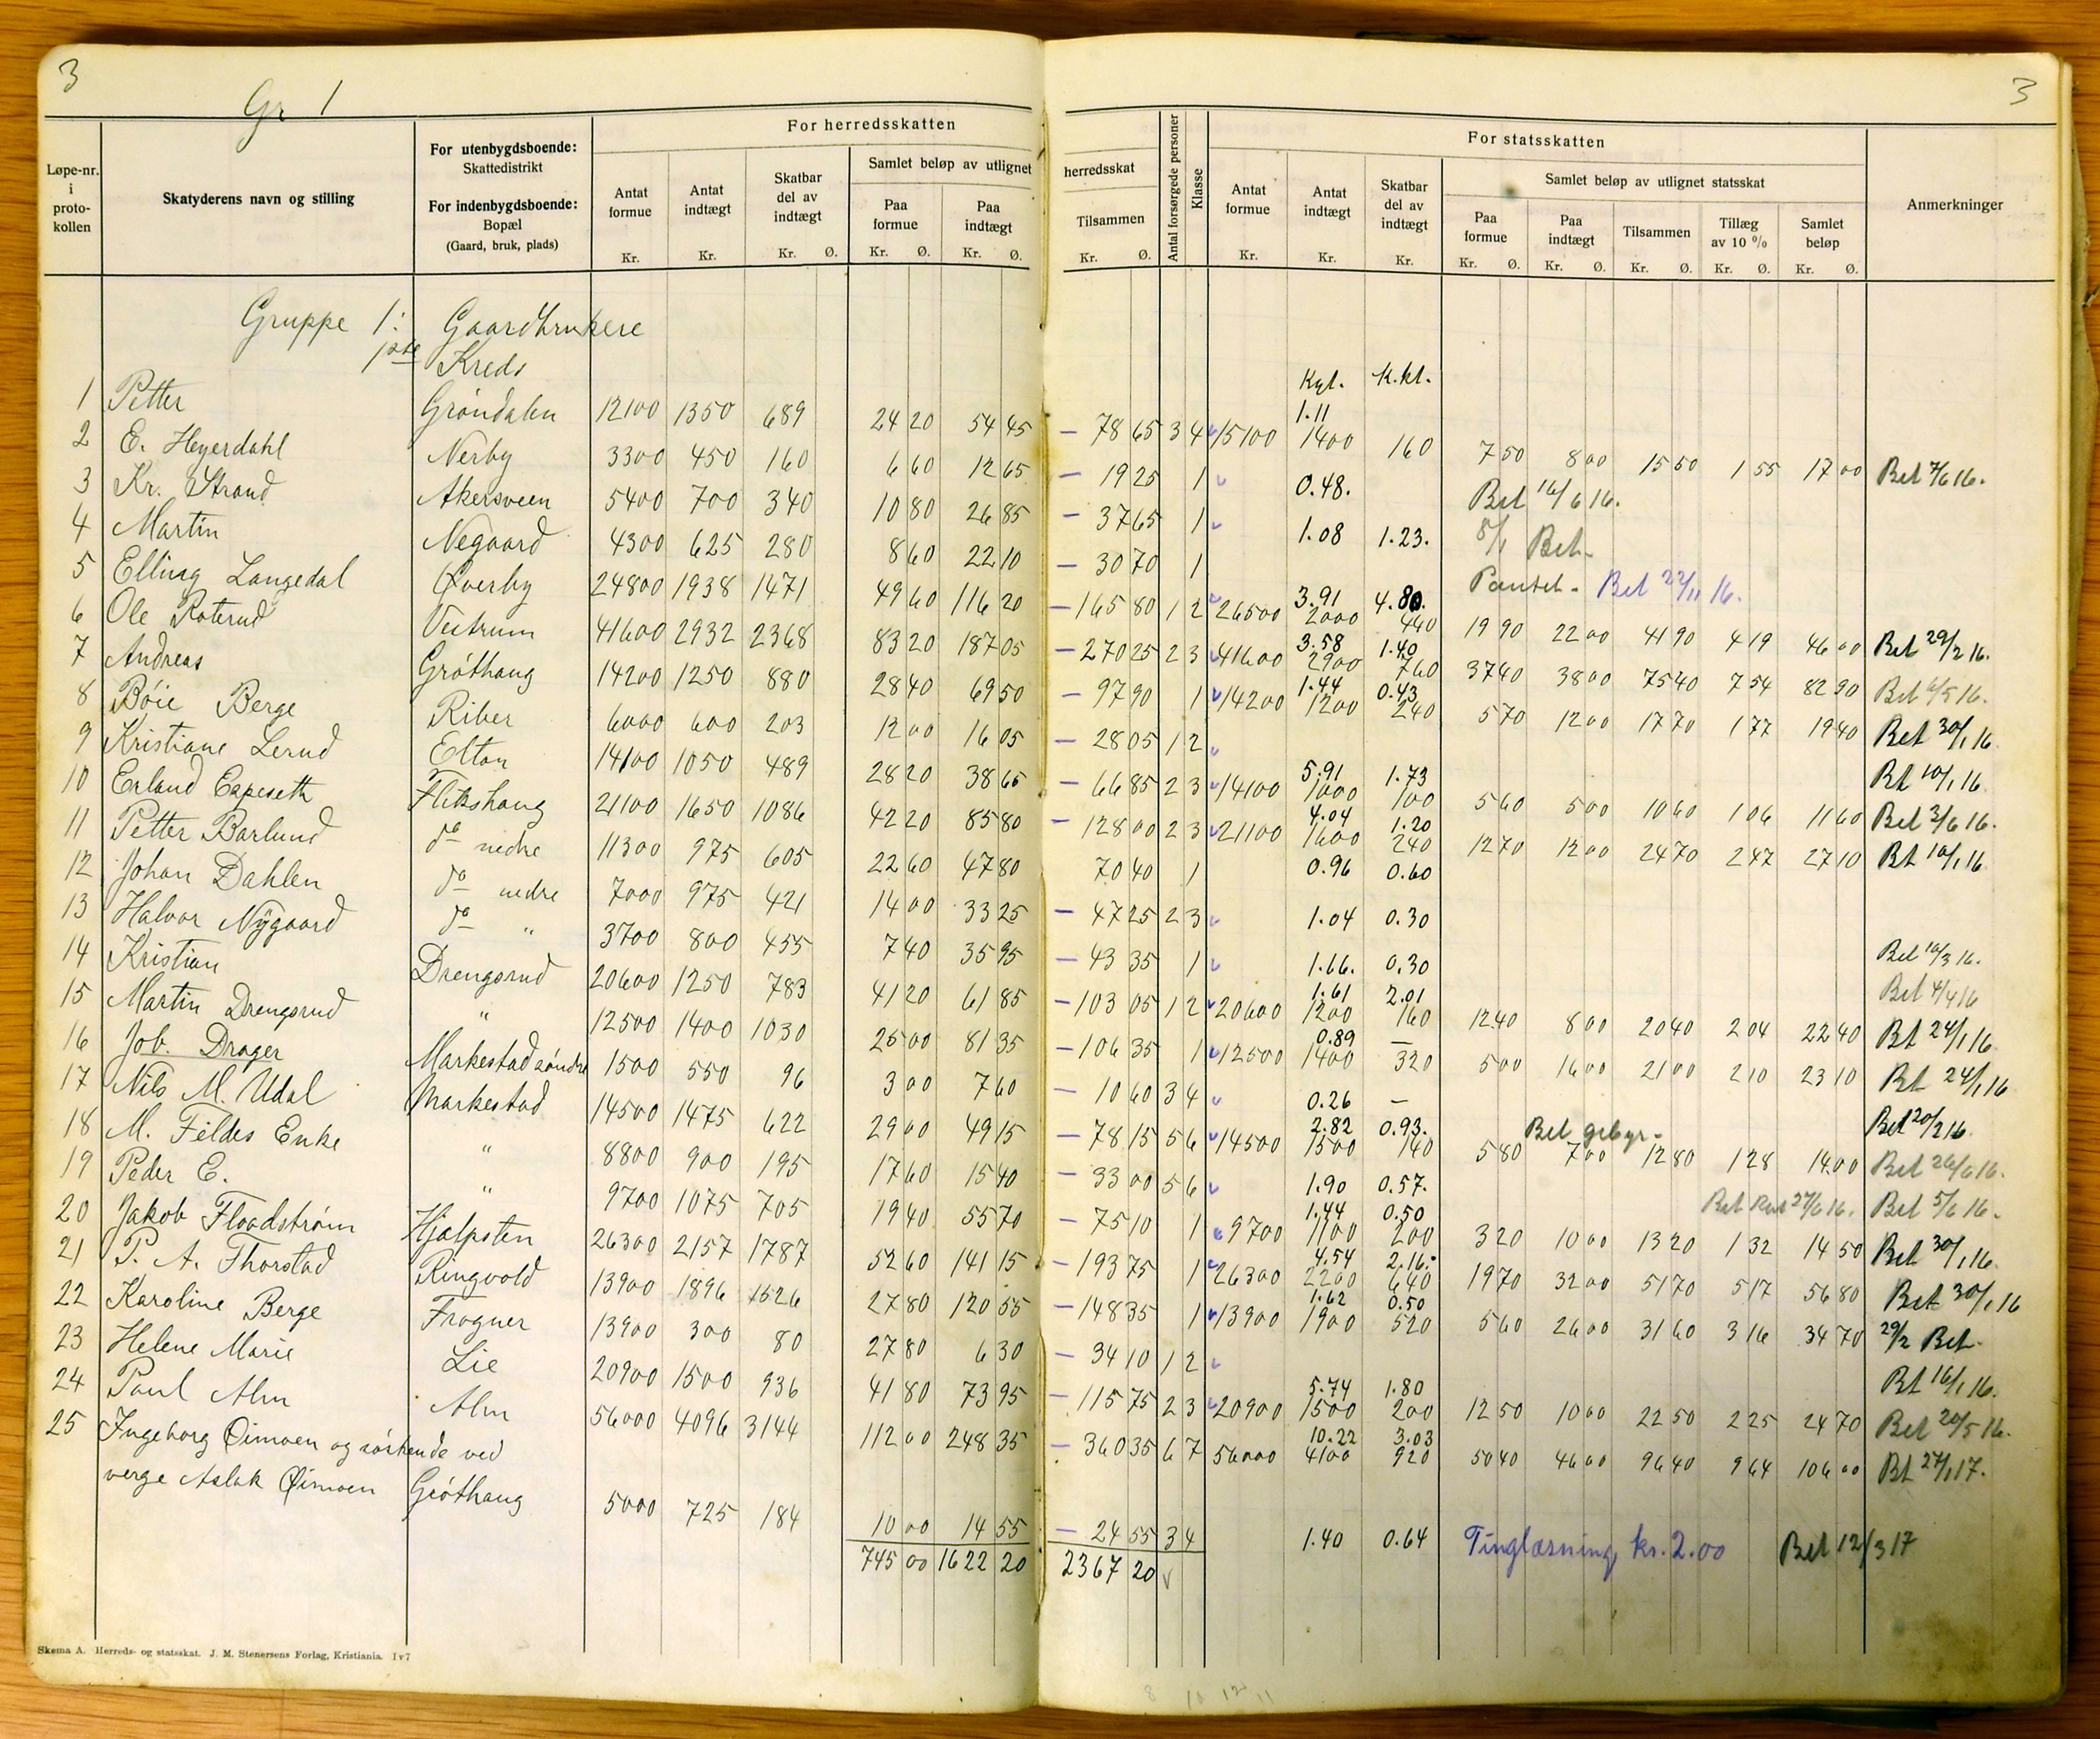 3
Gr 1
3
Løpe-nr. i proto- kollen
Skatyderens navn og stilling
For utenbygdsboende: Skattedistrikt
For indenbygdsboende: Bopæl (Gaard, bruk, plads)
For herredsskatten
Antat formue Kr.
Antat indtægt Kr.
Skatbar del av indtægt Kr. Ø.
Samlet beløp av utlignet herredsskat
Paa formue Kr. Ø.
Paa indtægt Kr. Ø.
Tilsammen Kr. Ø.
Antal forsørgede personer
Klasse
For statsskatten
Antat formue Kr.
Antat indtægt Kr.
Skatbar del av indtægt Kr.
Samlet beløp av utlignet statsskat
Paa formue Kr. Ø.
Paa indtægt Kr. Ø.
Tilsammen Kr. Ø.
Tillæg av 10 % Kr. Ø.
Samlet beløp Kr. Ø.
Anmerkninger
Gruppe 1: Gaardbrukere
1ste Kreds
Kgl. K.kl.
1 Petter Gröndalen 12100 1350 689 24 20 54 45 – 78 65 3 4 15100 1.11 1400 160 7 50 8 00 15 50 1 55 17 00 Bet 7/6 16.
2 E. Heyerdahl Nerby 3300 450 160 6 60 12 65 – 19 25 1 0.48. Bet 16/6 16.
3 Kr. Strand Akersveen 5400 700 340 10 80 26 85 – 37 65 1 1.08 1.23. 8/1 Bet.
4 Martin Negaard 4300 625 280 8 60 22 10 – 30 70 1 Pantet. Bet 22/11 16.
5 Elling Langedal Øverby 24800 1938 1471 49 60 116 20 – 165 80 1 2 26500 3.91 2000 4.80. 440 19 90 22 00 41 90 4 19 46 00 Bet 29/2 16.
6 Ole Roterud Vestrum 41600 2932 2368 83 20 187 05 – 270 25 2 3 41600 3.58 2900 1.40 760 37 40 38 00 75 40 7 54 82 90 Bet 6/5 16.
7 Andreas Gröthaug 14200 1250 880 28 40 69 50 – 97 90 1 14200 1.44 1200 0.43 240 5 70 12 00 17 70 1 77 19 40 Bet 30/1 16.
8 Böie Berge Riber 6000 600 203 12 00 16 05 – 28 05 1 2 Bt 10/1 16.
9 Kristiane Lerud Elton 14100 1050 489 28 20 38 65 – 66 85 2 3 14100 5.91 1000 1.73 100 5 60 5 00 10 60 1 06 11 60 Bet 3/6 16.
10 Erland Eapeseth Flikshaug 21100 1650 1086 42 20 85 80 – 128 00 2 3 21100 4.04 1600 1.20 240 12 70 12 00 24 70 2 47 27 10 Bt 10/1 16.
11 Petter Barlund do nedre 11300 975 605 22 60 47 80 70 40 1 0.96 0.60
12 Johan Dahlen do nedre 7000 975 421 14 00 33 25 – 47 25 2 3 1.04 0.30
13 Halvor Nÿgaard do " 3700 800 455 7 40 35 95 – 43 35 1 1.66. 0.30 Bet 10/3 16.
14 Kristian Drengsrud 20600 1250 783 41 20 61 85 – 103 05 1 2 20600 1.61 1200 2.01 160 12 40 8 00 20 40 2 04 22 40 Bet 4/4 16
15 Martin Drengsrud " 12500 1400 1030 25 00 81 35 – 106 35 1 12500 0.89 1400 – 320 5 00 16 00 21 00 2 10 23 10 Bt 24/1 16.
16 Job. Drager Markestad söndre 1500 550 96 3 00 7 60 – 10 60 3 4 0.26 – Bt 24/1 16
17 Nils M. Udal Markestad 14500 1475 622 29 00 49 15 – 78 15 5 6 14500 2.82 1500 0.93. 140 5 80 7 00 12 80 1 28 14.00 Bet gebyr. Bet 20/2 16.
18 M. Feldes Enke " 8800 900 195 17 60 15 40 – 33 00 5 6 1.90 0.57. Bet 26/6 16.
19 Peder E. " 9700 1075 705 19 40 55 70 – 75 10 1 9700 1.44 1100 0.50 200 3 20 10 00 13 20 1 32 14 50 Bet Rest 27/6 16. Bet 5/6 16.
20 Jakob Floodström Hjalpsten 26300 2157 1787 52 60 141 15 – 193 75 1 26300 4.54 2200 2.16. 640 19 70 32 00 51 70 5 17 56 80 Bet 30/1 16.
21 P. A. Thorstad Ringvold 13900 1896 1526 27 80 120 55 – 148 35 1 13900 1.62 1900 0.50 520 5 60 26 00 31 60 3 16 34 70 Bet 30/1 16
22 Karoline Berge Frogner 13900 300 80 27 80 6 30 – 34 10 1 2 29/2 Bet.
23 Helene Marie Lie 20900 1500 936 41 80 73 95 – 115 75 2 3 20900 5.74 1500 1.80 200 12 50 10 00 22 50 2 25 24 70 Bt 16/1 16.
24 Paul Alm Alm 56000 4096 3144 112 00 248 35 – 360 35 6 7 56000 10.22 4100 3.03 920 50 40 46 00 96 40 9 64 106 00 Bet 20/5 16.
Bt 27/1 17.
25 Ingeborg Øimoen og söskende ved
verge Aslak Øimoen Gröthaug 5000 725 184 10 00 14 55 – 24 55 3 4 1.40 0.64 Tinglæsning, kr. 2.00 Bet 12/3 17
745 00 1622 20 2367 20
Skema A. Herreds- og statsskat. J. M. Stenersens Forlag, Kristiania. 1v7
8 10 12 11